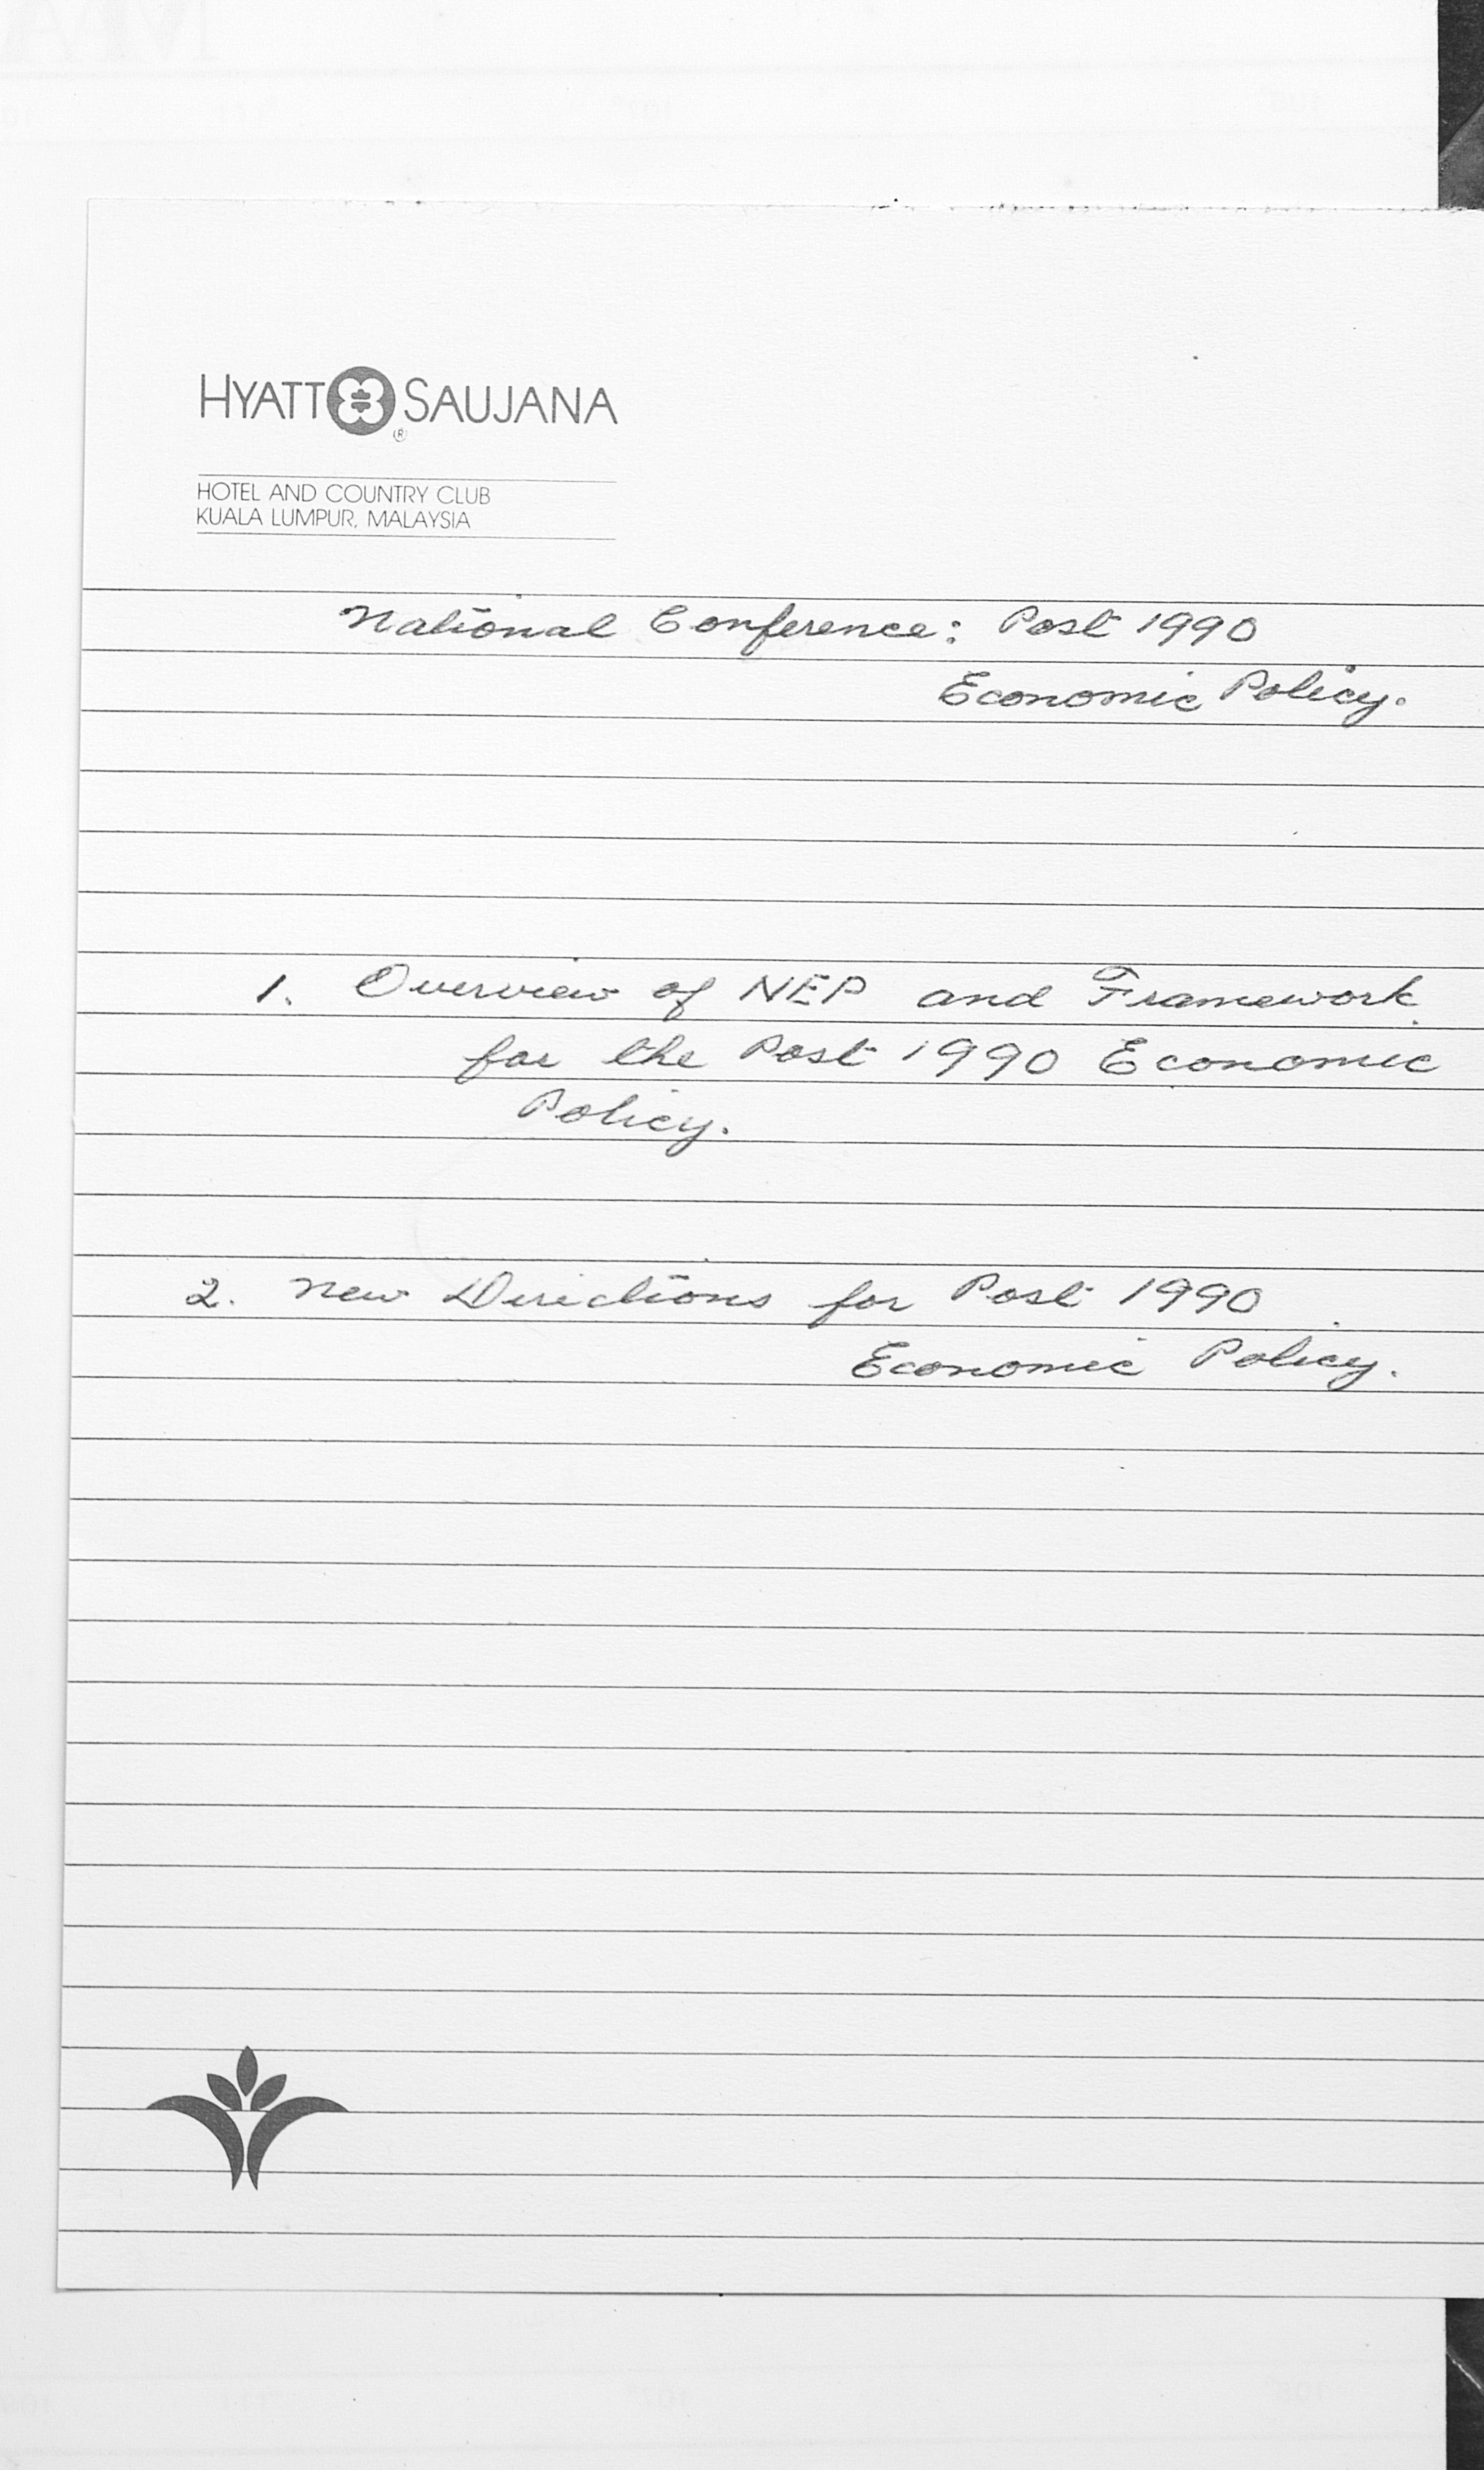 HYATT SAUJANA
®
HOTEL AND COUNTRY CLUB
KUALA LUMPUR, MALAYSIA
National Conference: Post 1990
Economic Policy.
1. Overview of NEP and Framework
for the Post 1990 Economic
Policy.
2. New Directions for Post 1990
Economic Policy.